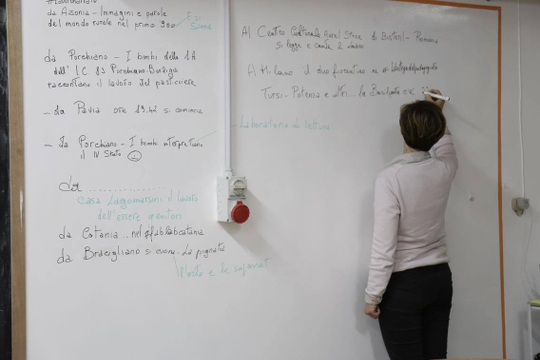 da Assonia - Immagini e parole
del mondo rurale nel primo 900
E si
Suona
da Porchiano - I bimbi della 1A
dell' I C 83 Porchiano Bordiga
raccontano il lavoro del pasticciere
- da Pavia ore 19.42 si comincia
- Da Porchiano - I bimbi interpretano
il IV Stato
Da ................
casa Lagomarsini il lavoro
dell'essere genitori
da Catania ... nel #fablabcatania
da Bracigliano si suona - La pignata
Al Centro Culturale Aurel Stroe di Busteni - Romania
si legge e canta il lavoro
A Milano il duo fiorentino in #
Tursi - Potenza e altri... la Basilicata c'è
- Laboratorio di lettura